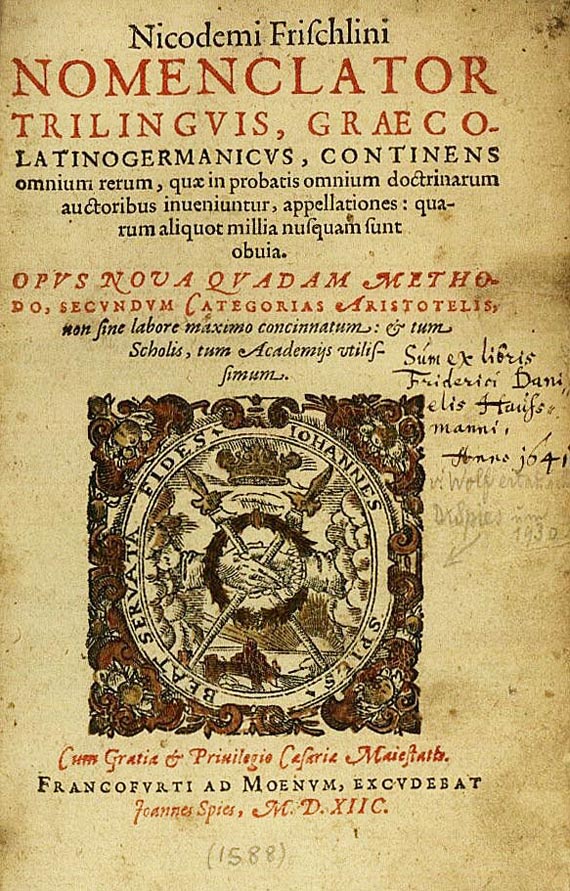 Nicodemi Friſchlini
NOMENCLATOR
TRILINGVIS, GRAECO-
LATINOGERMANICVS, CONTINENS
omnium rerum, quæ in probatis omnium doctrinarum
auctoribus inueniuntur, appellationes: qua-
rum aliquot millia nuſquam ſunt
obuia.
OPVS NOVA QVADAM METHO-
DO, SECVNDVM CATEGORIAS ARISTOTELIS,
non ſine labore maximo concinnatum: & tum
Scholis, tum Academijs vtiliſ-
ſimum.
Sum ex libris
Friderici Dani
elis Hauſs-
manni,
Anno 1641
v. Wolf
Dr Spies
1930
BEAT SERVATA FIDES
IOHANNES SPIES
Cum Gratia & Priuilegio Cæſariæ Maieſtatis.
FRANCOFVRTI AD MOENVM, EXCVDEBAT
Joannes Spies, M. D. XIIC.
(1588)